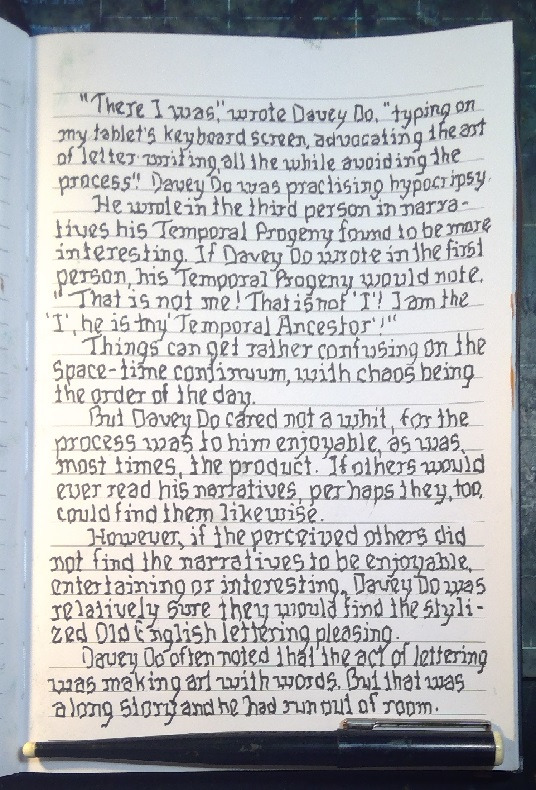 "There I was," wrote Davey Do, "typing on
my tablet's keyboard screen, advocating the art
of letter writing, all the while avoiding the
process". Davey Do was practising hypocripsy.
He wrote in the third person in narra-
tives his Temporal Progeny found to be more
interesting. If Davey Do wrote in the first
person, his Temporal Progeny would note,
"That is not me! That is not 'I'! I am the
'I', he is my 'Temporal Ancestor'!"
Things can get rather confusing on the
space-time continuum, with chaos being
the order of the day.
But Davey Do cared not a whit, for the
process was to him enjoyable, as was,
most times, the product. If others would
ever read his narratives, perhaps they, too,
could find them likewise.
However, if the perceived others did
not find the narratives to be enjoyable,
entertaining or interesting, Davey Do was
relatively sure they would find the styli-
zed Old English lettering pleasing.
Davey Do often noted that the act of lettering
was making art with words. But that was
a long story and he had run out of room.